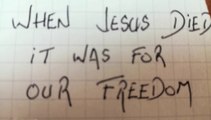 WHEN JESUS DIED
IT WAS FOR
OUR FREEDOM